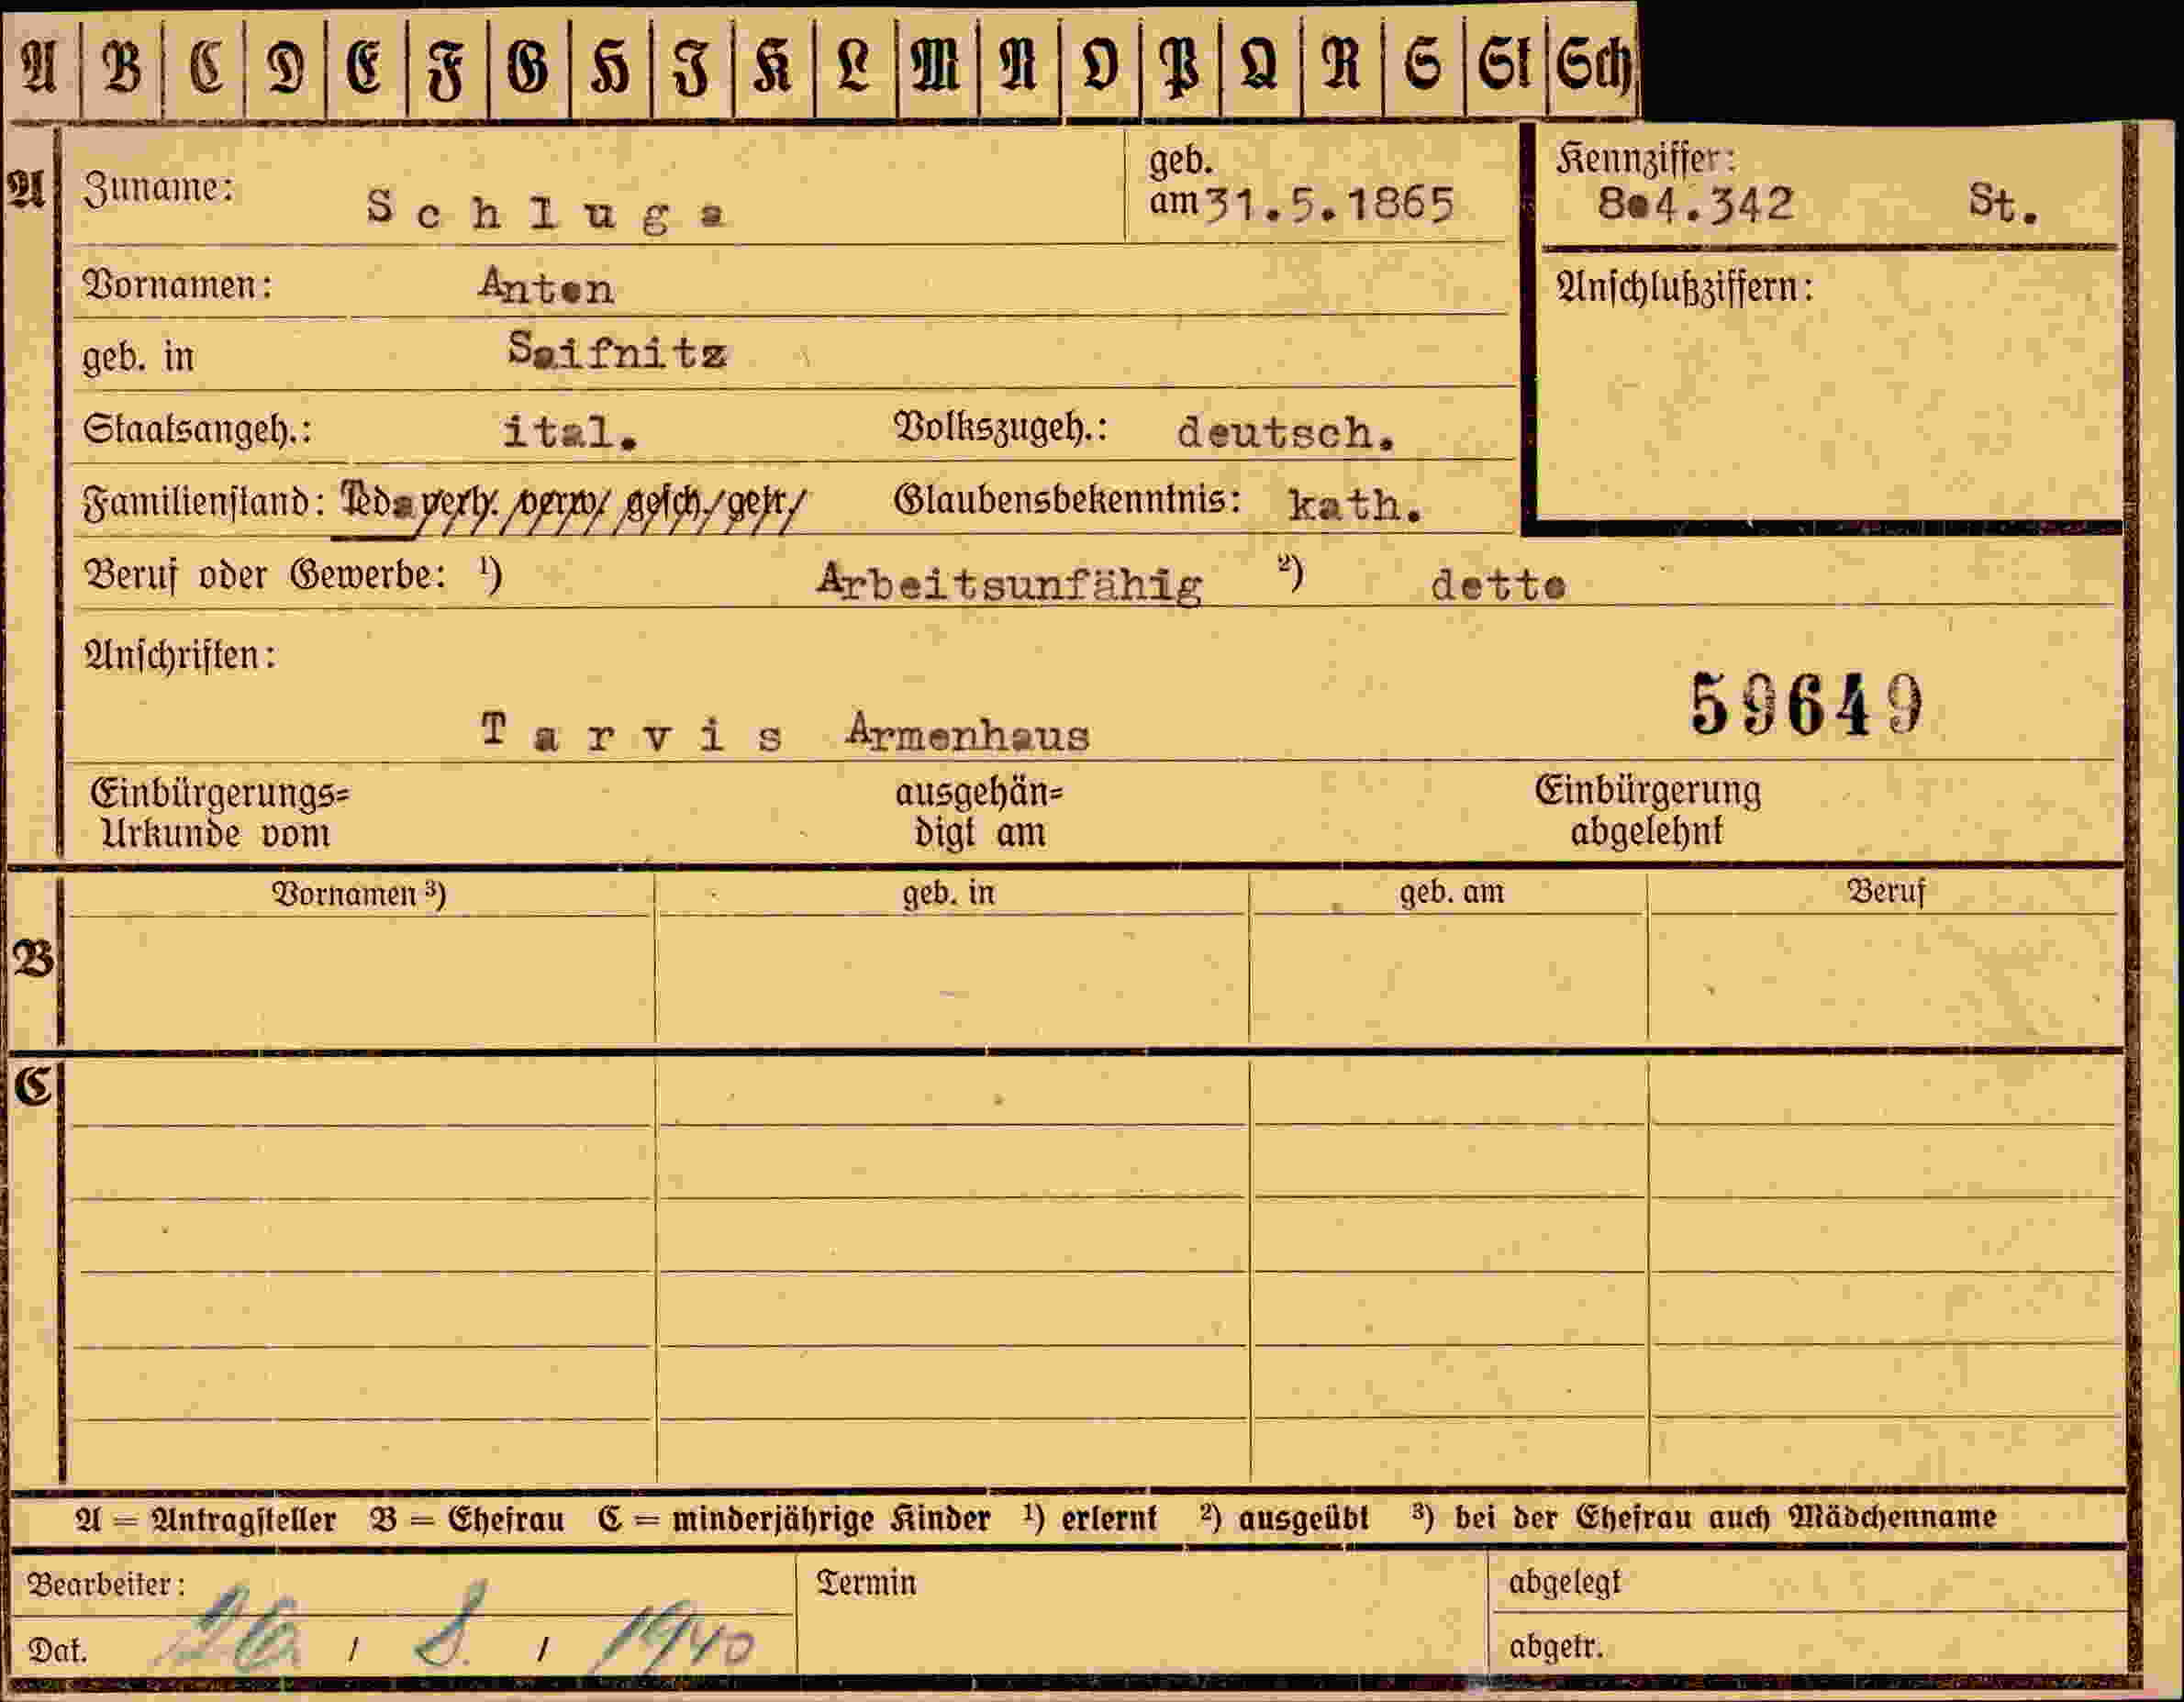 A B C D E F G H I K L M N O P Q R S St Sch
A Zuname: Schluga geb. am 31.5.1865 Kennziffer: 804.342 St.
Vornamen: Anton Anschlußziffern:
geb. in Seifnitz
Staatsangeh.: ital. Volkszugeh.: deutsch.
Familienstand: led. verh. verw. gesch. getr. Glaubensbekenntnis: kath.
Beruf oder Gewerbe: ¹) Arbeitsunfähig ²) detto
Anschriften:
59649
Tarvis Armenhaus
Einbürgerungs= ausgehän= Einbürgerung
Urkunde vom digt am abgelehnt
Vornamen ³) geb. in geb. am Beruf
B
C
A = Antragsteller B = Ehefrau C = minderjährige Kinder ¹) erlernt ²) ausgeübt ³) bei der Ehefrau auch Mädchenname
Bearbeiter: Termin abgelegt
Dat. 26 / 8. / 1940 abgetr.